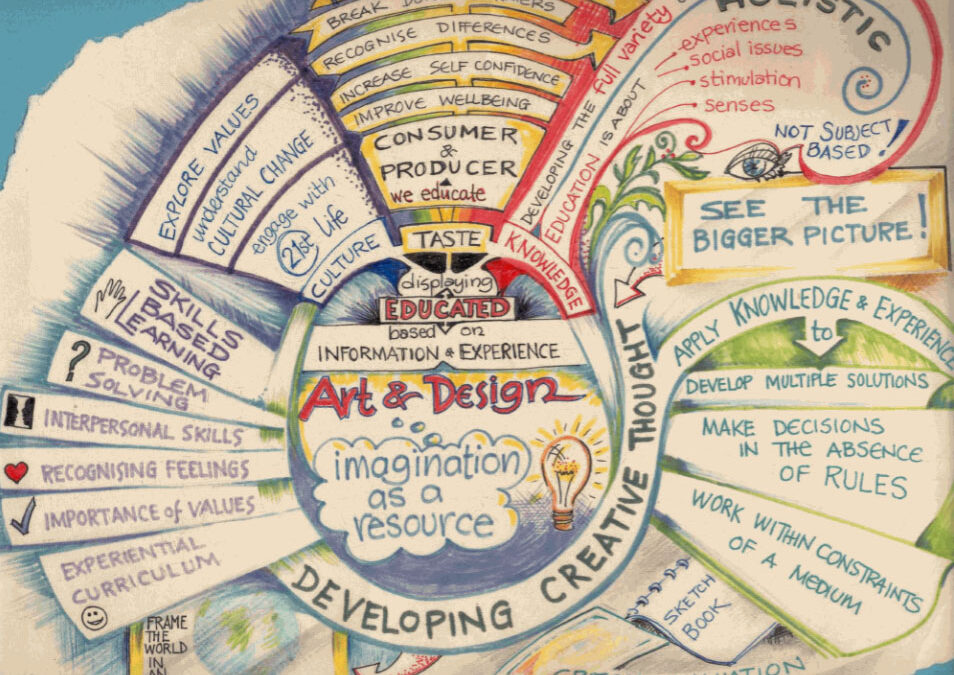 BREAK
RECOGNISE DIFFERENCES
INCREASE SELF CONFIDENCE
IMPROVE WELLBEING
CONSUMER
&
PRODUCER
we educate
TASTE
displaying
EDUCATED
based on
INFORMATION & EXPERIENCE
Art & Design
imagination
as a
resource
EXPLORE VALUES
understand
CULTURAL CHANGE
engage with
21st Life
CULTURE
KNOWLEDGE
DEVELOPING THE full variety
EDUCATION IS ABOUT
experiences
social issues
stimulation
senses
HOLISTIC
NOT SUBJECT
BASED!
SEE THE
BIGGER PICTURE!
SKILLS
BASED
LEARNING
? PROBLEM
SOLVING
INTERPERSONAL SKILLS
RECOGNISING FEELINGS
IMPORTANCE of VALUES
EXPERIENTIAL
CURRICULUM
DEVELOPING CREATIVE THOUGHT
APPLY KNOWLEDGE & EXPERIENCE
to
DEVELOP MULTIPLE SOLUTIONS
MAKE DECISIONS
IN THE ABSENCE
OF RULES
WORK WITHIN CONSTRAINTS
OF A MEDIUM
SKETCH
BOOK
FRAME
THE
WORLD
IN
AN